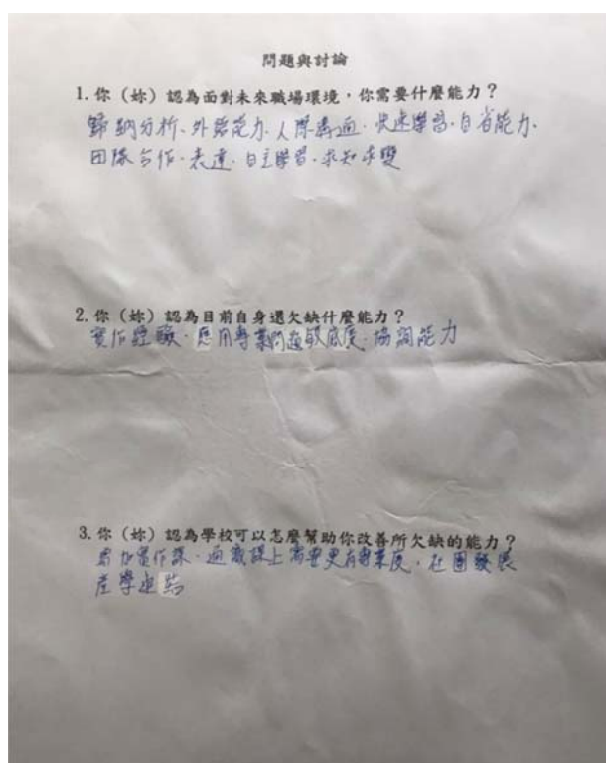 問題與討論
1. 你（妳）認為面對未來職場環境，你需要什麼能力？
歸納分析、外語能力、人際溝通、快速學習、自省能力、
团隊合作、表達、自主學習、求知求變
2. 你（妳）認為目前自身還欠缺什麼能力？
實作經驗、應用專業問題敏感度、協調能力
3. 你（妳）認為學校可以怎麼幫助你改善所欠缺的能力？
增加實作課、通識課上需要更有專業度、社團發展
產學連結